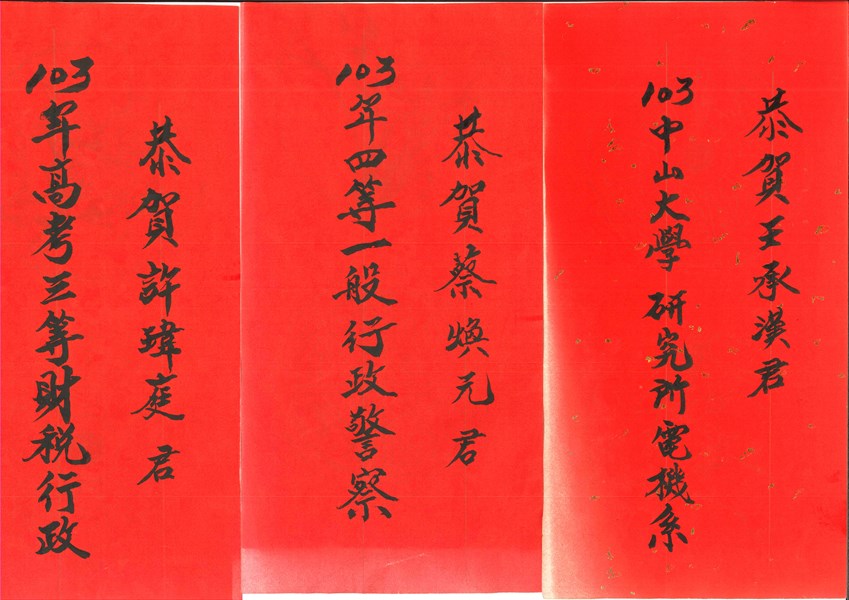 恭賀王承漢君
103中山大學 研究所電機系
恭賀蔡煥元君
103年四等一般行政警察
恭賀許瑋庭君
103年高考三等財稅行政